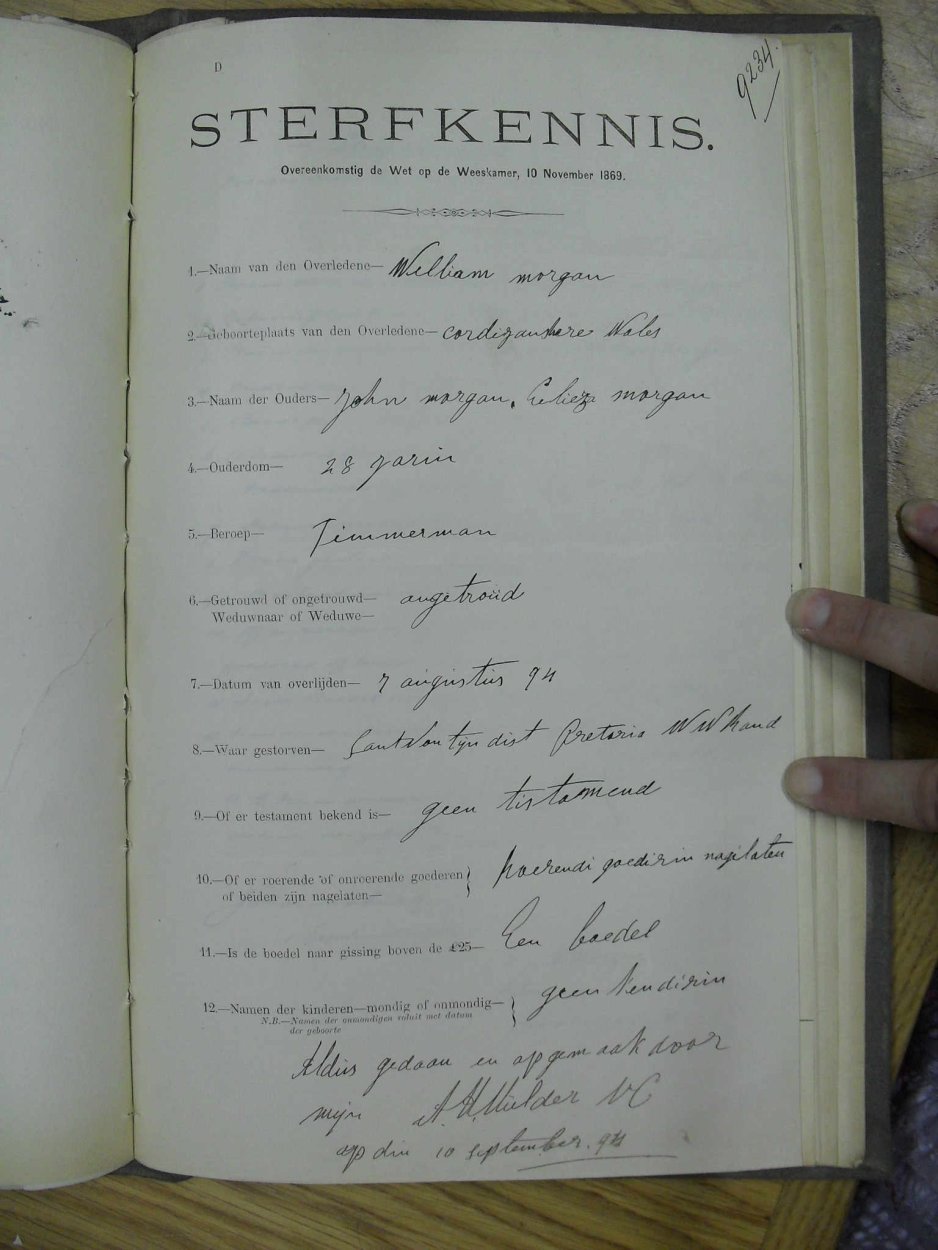 D
9234.
STERFKENNIS.
Overeenkomstig de Wet op de Weeskamer, 10 November 1869.
1.—Naam van den Overledene— William morgan
2.—Geboorteplaats van den Overledene— Wales
3.—Naam der Ouders— John morgan, Elieza morgan
4.—Ouderdom— 28 jarin
5.—Beroep— Timmerman
6.—Getrouwd of ongetrouwd— ongetroüd
Weduwnaar of Weduwe—
7.—Datum van overlijden— 7 augüstüs 94
8.—Waar gestorven— dist Pretoria W W Rand
9.—Of er testament bekend is— geen tistamend
10.—Of er roerende of onroerende goederen } Roerendi goedirin nagilaten
of beiden zijn nagelaten—
11.—Is de boedel naar gissing boven de £25— Een boedel
12.—Namen der kinderen—mondig of onmondig— } geen kendirin
N.B.—Namen der onmondigen voluit met datum
der geboorte
Aldüs gedaan en opgemaak door
mijn A. H. Mülder VC
op din 10 september. 94